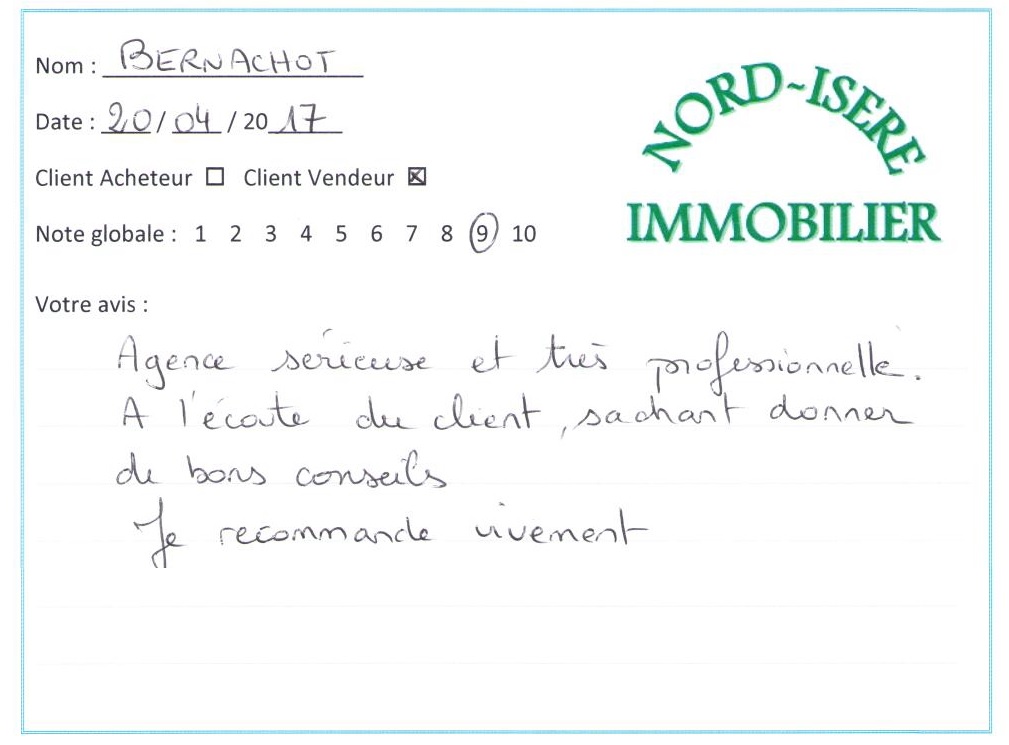 Nom : BERNACHOT
Date : 20/04/2017
Client Acheteur ☐ Client Vendeur ☒
Note globale : 1 2 3 4 5 6 7 8 9 10
NORD-ISERE
IMMOBILIER
Votre avis :
Agence sérieuse et très professionnelle.
A l'écoute du client, sachant donner
de bons conseils
Je recommande vivement